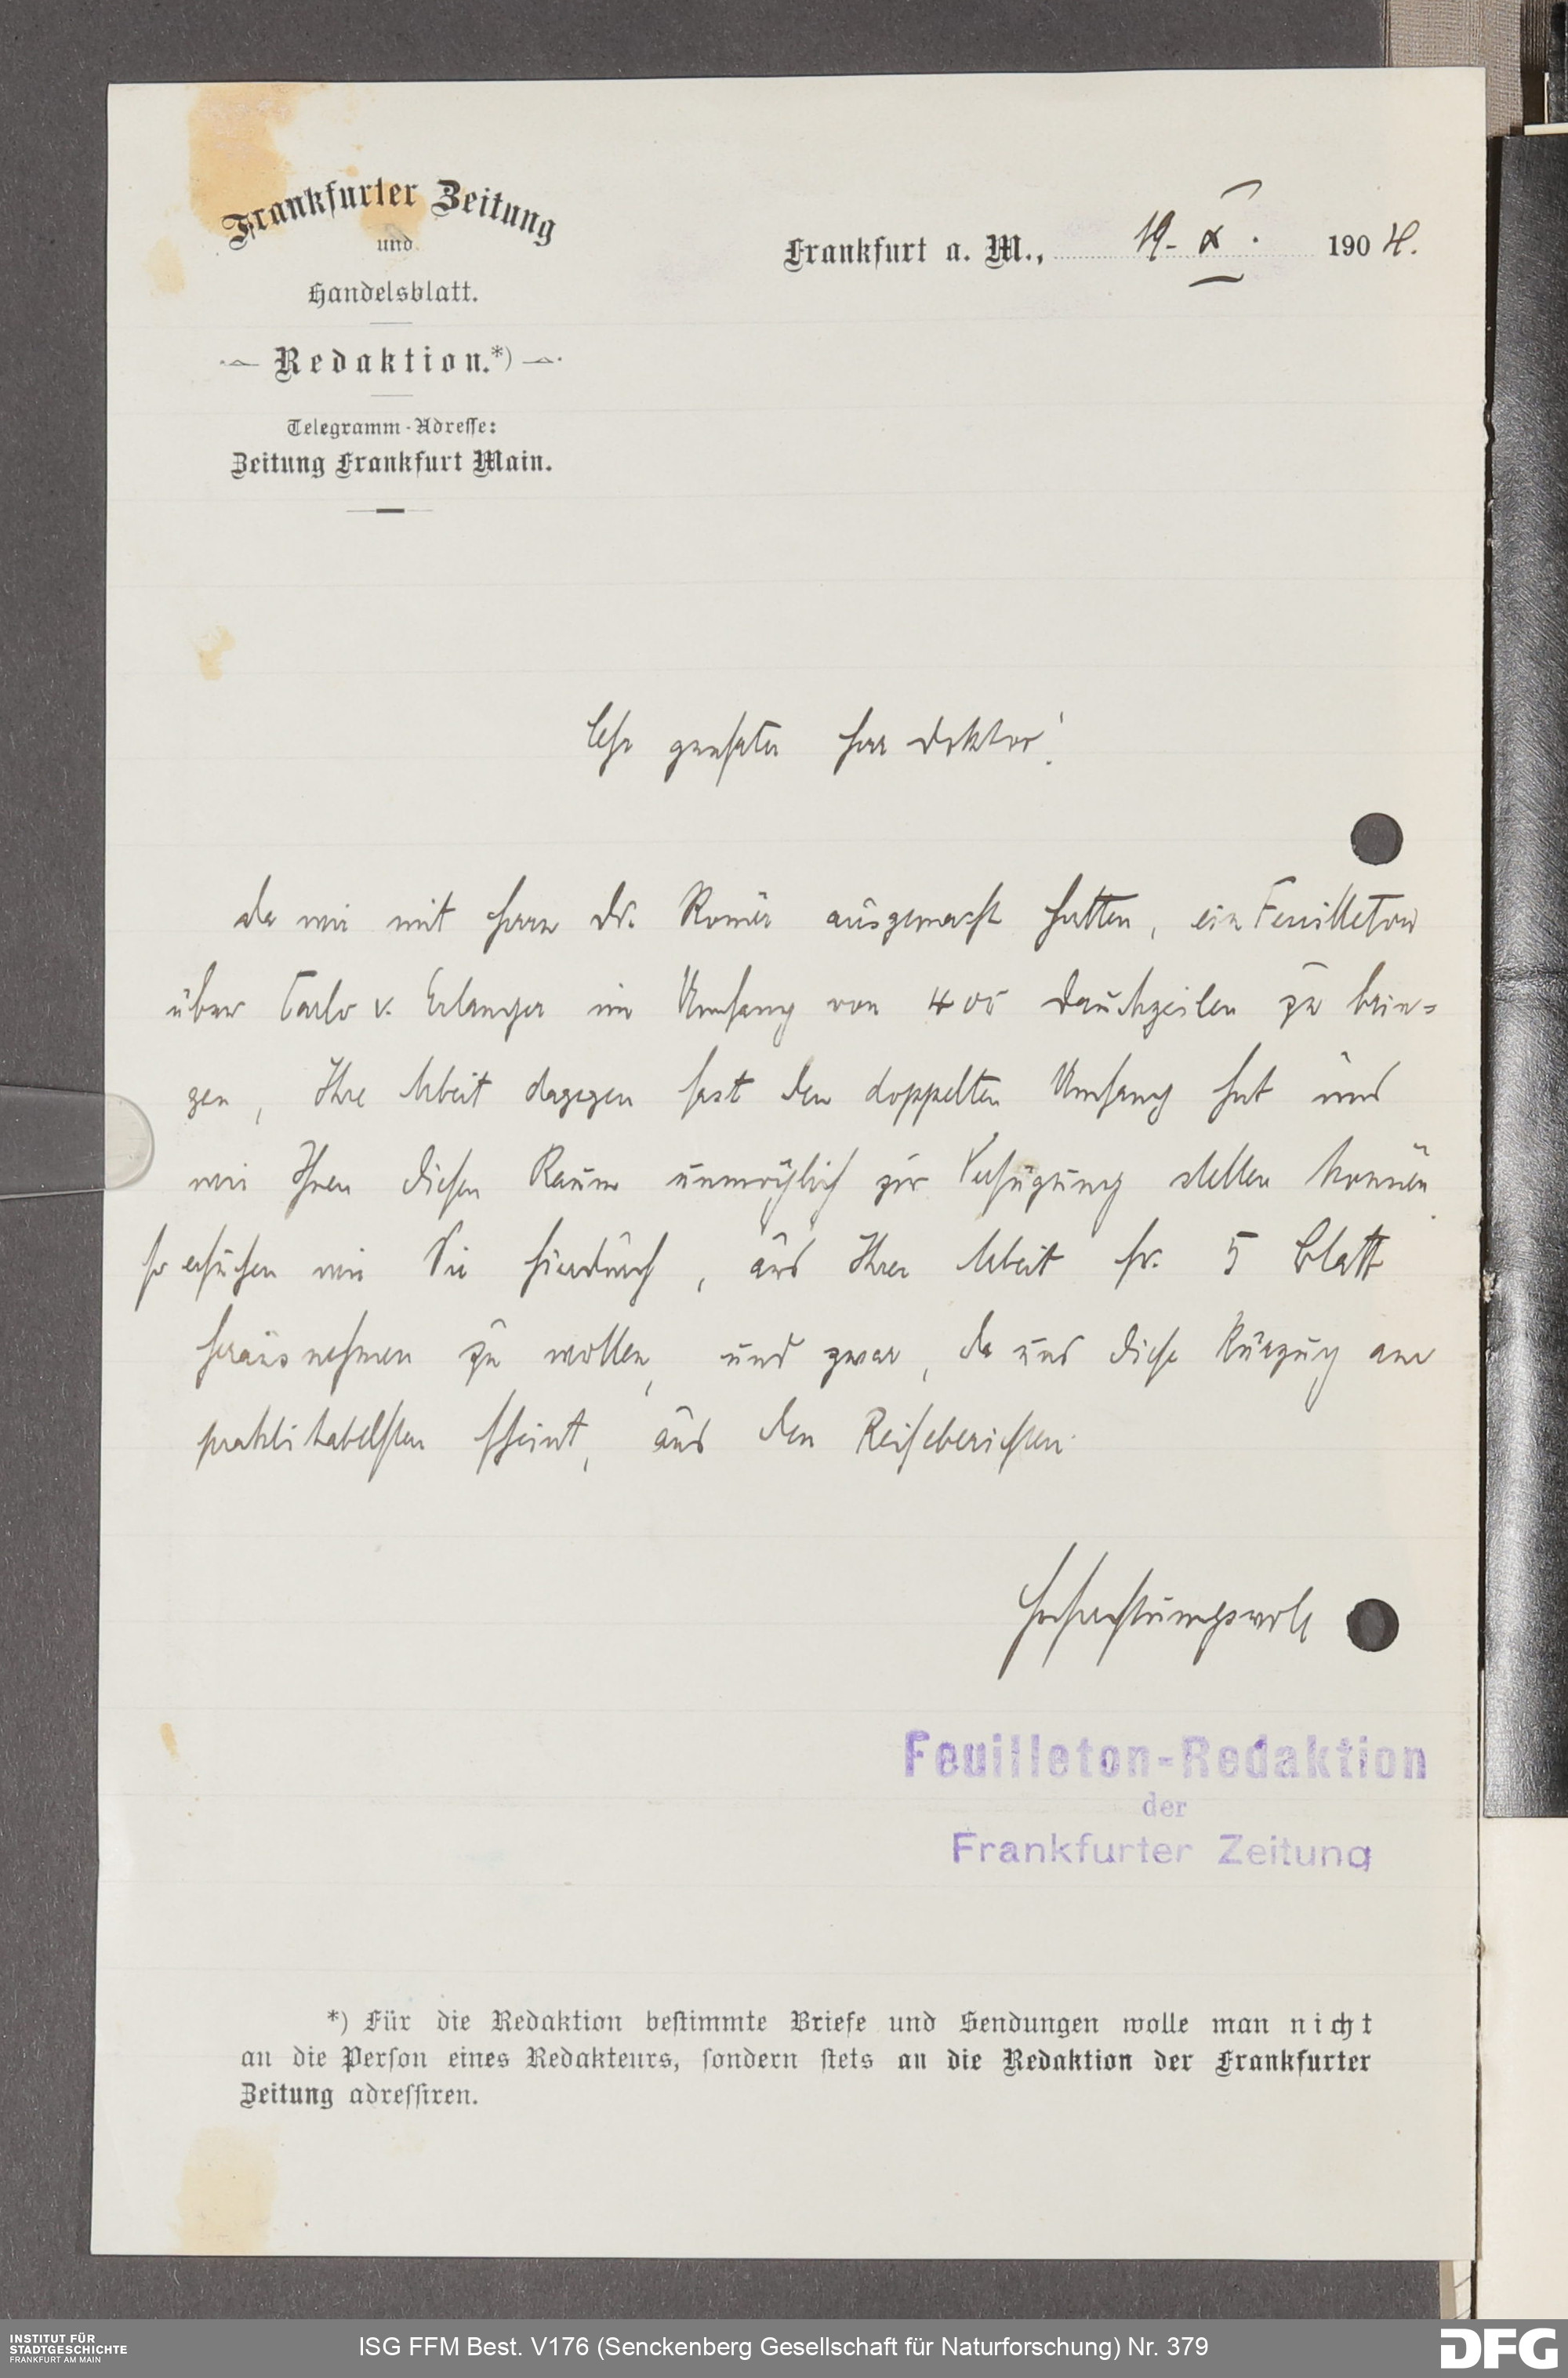 Frankfurter Zeitung
und
Handelsblatt.
Redaktion.*)
Telegramm-Adresse:
Zeitung Frankfurt Main.
Frankfurt a. M., 19. X. 1904.
Sehr geehrter Herr Doktor!
da wir mit Herrn Dr. Römer ausgemacht hatten, ein Feuilleton
über Carlo v. Erlanger im Umfang von 400 Druckzeilen zu brin=
gen, Ihre Arbeit dagegen fast den doppelten Umfang hat und
wir Ihnen diesen Raum unmöglich zur Verfügung stellen können
so ersuchen wir Sie hierdurch, aus Ihrer Arbeit 5 Blatt
herausnehmen zu wollen, und zwar, da uns diese Kürzung am
praktikabelsten scheint, aus den Reiseberichten.
Hochachtungsvoll
Feuilleton-Redaktion
der
Frankfurter Zeitung
*) Für die Redaktion bestimmte Briefe und Sendungen wolle man nicht
an die Person eines Redakteurs, sondern stets an die Redaktion der Frankfurter
Zeitung adressiren.
INSTITUT FÜR
STADTGESCHICHTE
FRANKFURT AM MAIN
ISG FFM Best. V176 (Senckenberg Gesellschaft für Naturforschung) Nr. 379
DFG